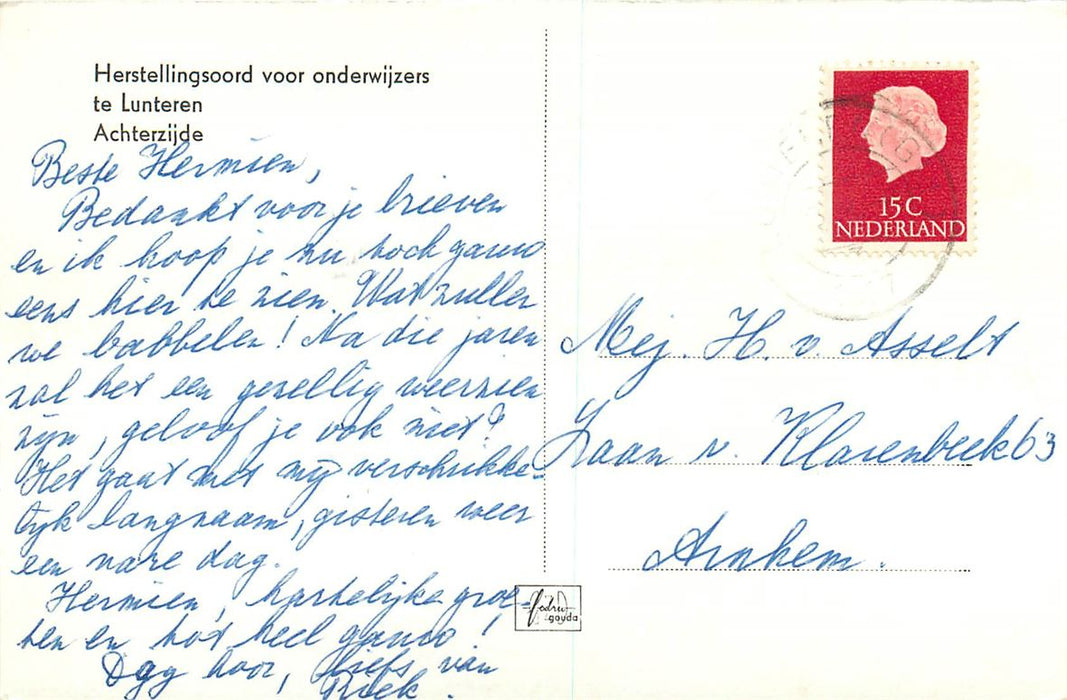 Herstellingsoord voor onderwijzers
te Lunteren
Achterzijde
Beste Hermien,
Bedankt voor je brieven
en ik hoop je nu toch gauw
eens hier te zien. Wat zullen
we babbelen! Na die jaren
zal het een gezellig weerzien
zijn, geloof je ook niet?
Het gaat met mij verschrikke-
lijk langzaam, gisteren weer
een nare dag.
Hermien, hartelijke groe-
ten en tot heel gauw!
Dag hoor, liefs van
15 C
NEDERLAND
Mej. H. v. Asselt
Laan v. Klarenbeek 63
Arnhem.
gayda